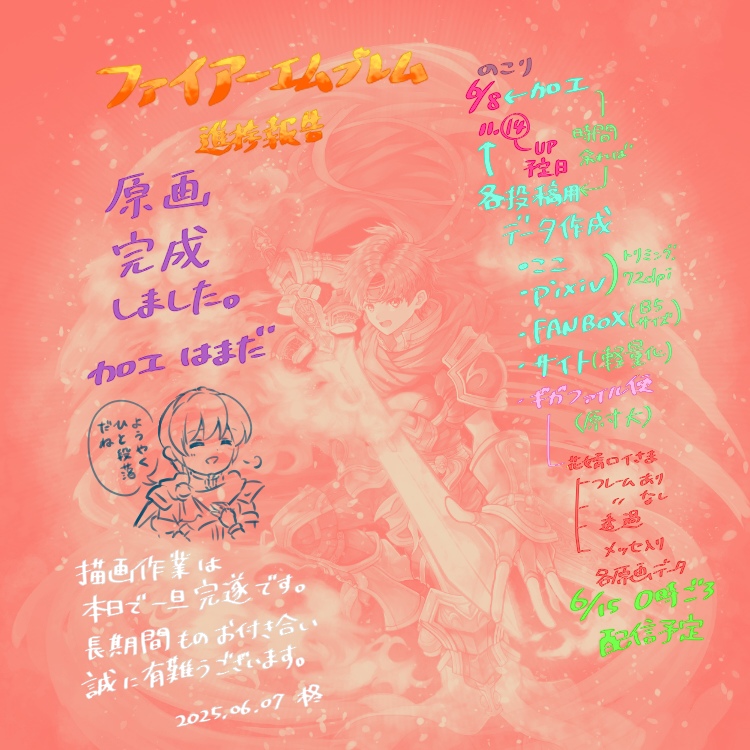 ファイアーエムブレム
進捗報告
原画
完成
しました。
加工 はまだ
ようやく
ひと段落
だね
描画作業は
本日で一旦完遂です。
長期間ものお付き合い
誠に有難うございます。
2025.06.07 柊
のこり
6/8 ← 加工
11. 14
UP
予定日
時間
余れば
各投稿用
データ作成
・ここ
・pixiv
トリミング
72dpi
・FANBOX (B5
サイズ)
・サイト (軽量化)
・ギガファイル便
(原寸大)
花婿ロイさま
フレームあり
〃 なし
透過
メッセ入り
各原画データ
6/15 0時ごろ
配信予定